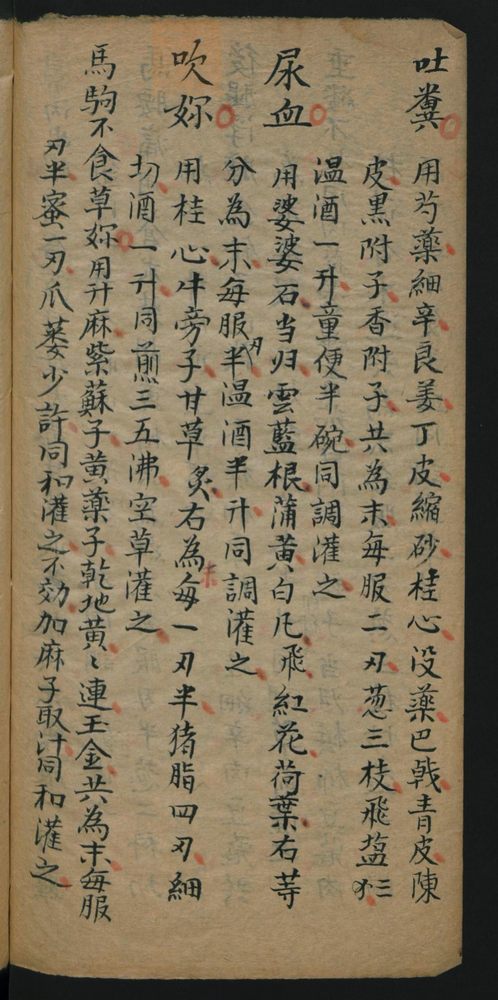 吐糞　用芍藥細辛良姜丁皮縮砂桂心没藥巴戟青皮陳
皮黑附子香附子共為末每服二刃葱三枝飛塩三
温酒一升童便半碗同調灌之
尿血　用婆婆石当归雲藍根蒲黄白凡飛紅花荷葉右等
分為末每服半刃温酒半升同調灌之
吹妳　用桂心牛旁子甘草炙右為末每一刃半猪脂四刃細
切酒一升同煎三五沸空草灌之
馬駒不食草妳用升麻紫蘇子黄藥子乾地黄〻連玉金共為末每服
刃半蜜一刃瓜蒌少許同和灌之不効加麻子取汁同和灌之